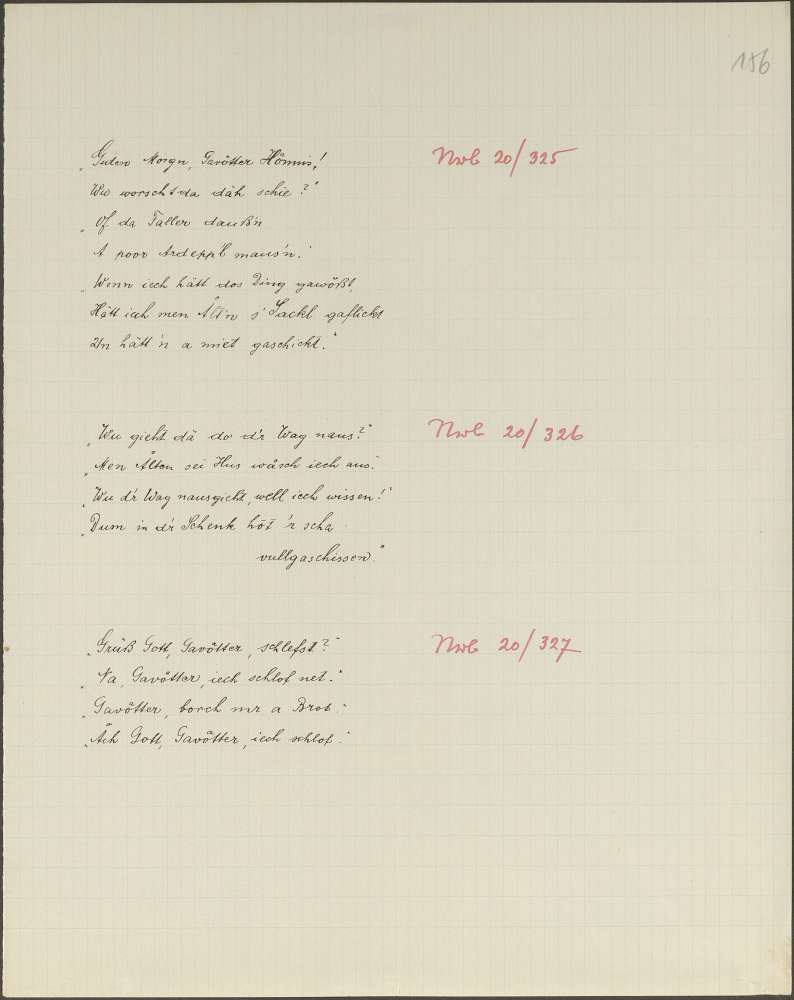 186
„Guten Morgn, Gavötter Hönnis!
Nwb 20/325
Wu worscht da däh schie?“
„Of da Taller dauß'n
A poor Ardeppl maus'n.“
„Wenn iech hätt dos Ding gawößt,
Hätt iech men Ålt'n s' Sackl gaflickt
Un hätt'n a miet gaschickt.“
„Wu gieht dä do d'r Wag naus?“
Nwb 20/326
„Men Ålten sei Hus wåsch iech aus.“
„Wu d'r Wag nausgieht, well iech wissen!“
„Dum in d'r Schenk höt 'r scha
vullgaschissen.“
„Grüß Gott, Gavötter, schlefst?“
Nwb 20/327
„Na, Gavötter, iech schlof net.“
„Gavötter, borch mr a Brot.“
„Ach Gott, Gavötter, iech schlof.“